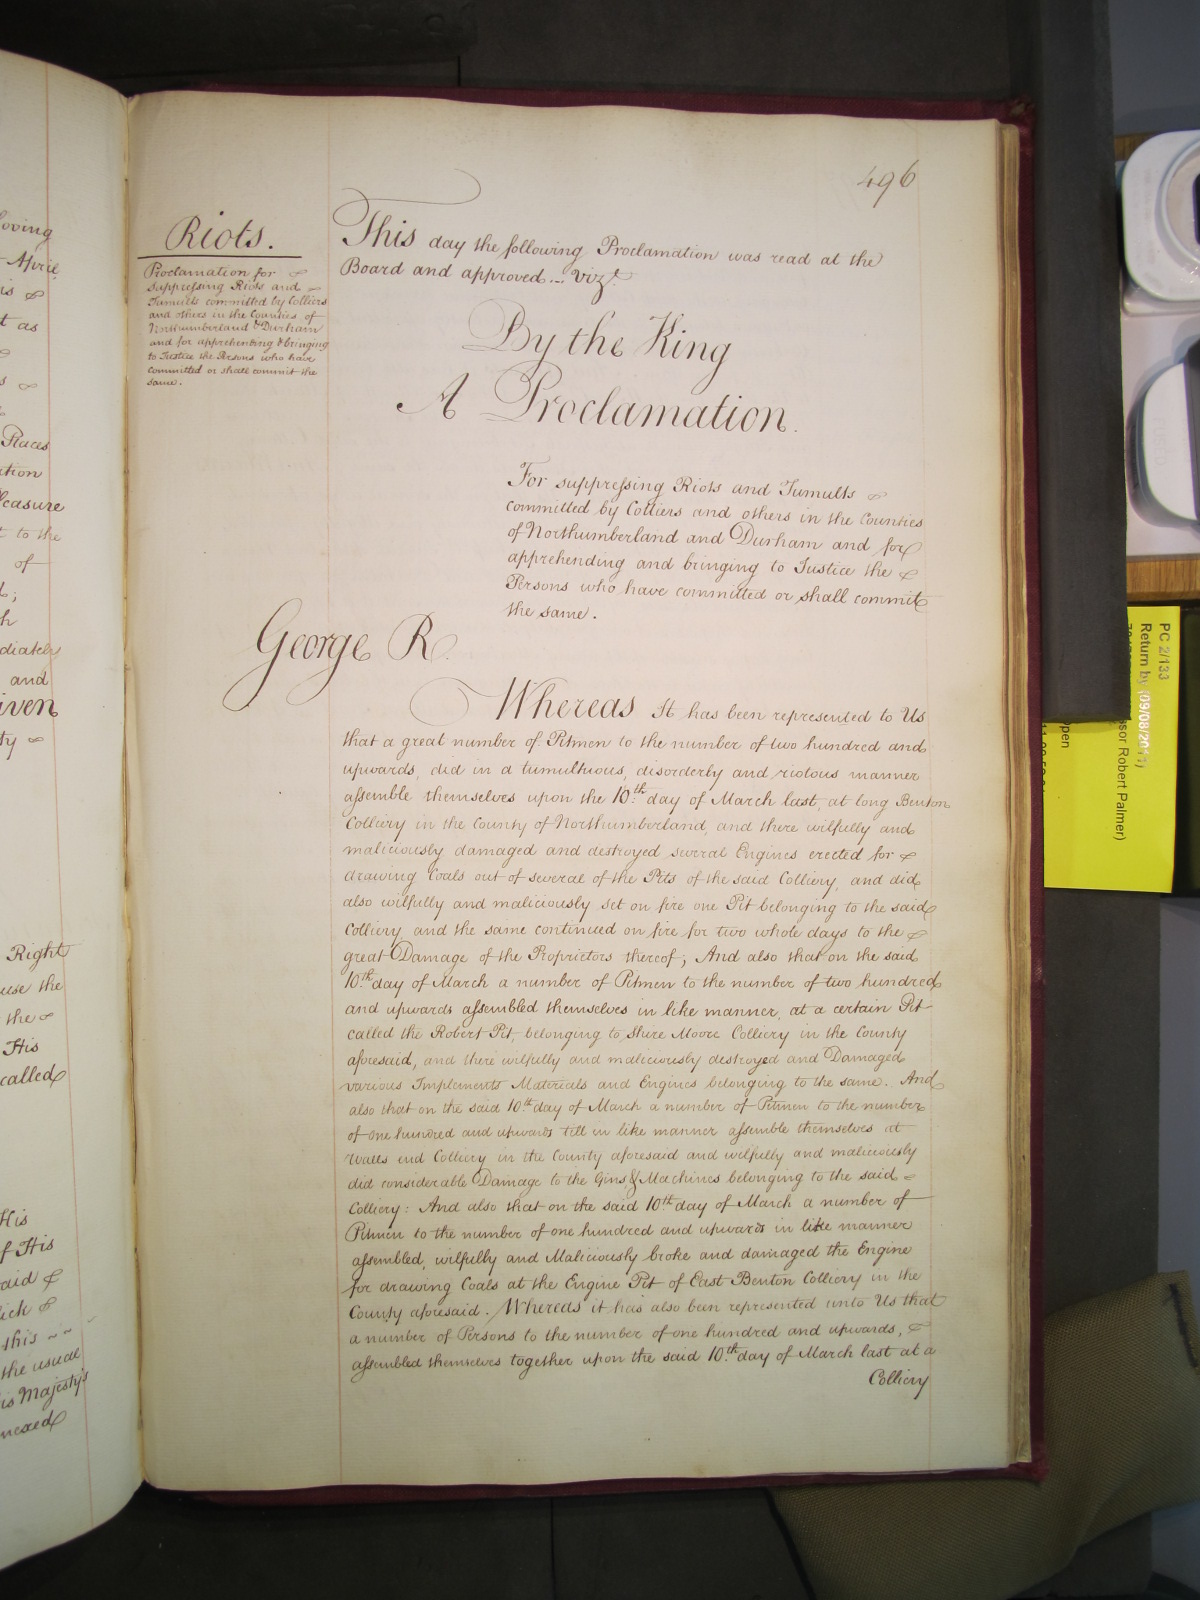 496
Riots.
Proclamation for
Suppressing Riots and
Tumults committed by Colliers
and others in the Counties of
Northumberland & Durham
and for apprehending & bringing
to Justice the Persons who have
committed or shall commit the
same.
This day the following Proclamation was read at the
Board and approved... Vizt.
By the King
A Proclamation.
For suppressing Riots and Tumults
committed by Colliers and others in the Counties
of Northumberland and Durham and for
apprehending and bringing to Justice the
Persons who have committed or shall commit
the same.
George R.
Whereas It has been represented to Us
that a great number of Pitmen to the number of two hundred and
upwards, did in a tumultuous, disorderly and riotous manner
assemble themselves upon the 10th day of March last, at long Benton
Colliery in the County of Northumberland, and there wilfully and
maliciously damaged and destroyed several Engines erected for
drawing Coals out of several of the Pits of the said Colliery, and did
also wilfully and maliciously set on fire one Pit belonging to the said
Colliery and the same continued on fire for two whole days to the
great Damage of the Proprietors thereof; And also that on the said
10th day of March a number of Pitmen to the number of two hundred
and upwards assembled themselves in like manner, at a certain Pit
called the Robert Pit, belonging to Shire Moore Colliery in the County
aforesaid, and there wilfully and maliciously destroyed and Damaged
various Implements Materials and Engines belonging to the same. And
also that on the said 10th day of March a number of Pitmen to the number
of one hundred and upwards till in like manner assemble themselves at
Walls end Colliery in the County aforesaid and wilfully and maliciously
did considerable Damage to the Gins & Machines belonging to the said
Colliery: And also that on the said 10th day of March a number of
Pitmen to the number of one hundred and upwards in like manner
assembled, wilfully and Maliciously broke and damaged the Engine
for drawing Coals at the Engine Pit of East Benton Colliery in the
County aforesaid. Whereas it has also been represented unto Us that
a number of Persons to the number of one hundred and upwards,
assembled themselves together upon the said 10th day of March last at a
Colliery
oving
April
as
Places
of
and
iven
Right
the
the
His
called
His
of His
this
the usual
Majesty's
PC 2/133
Return by (09/08/2011)
Robert Palmer)